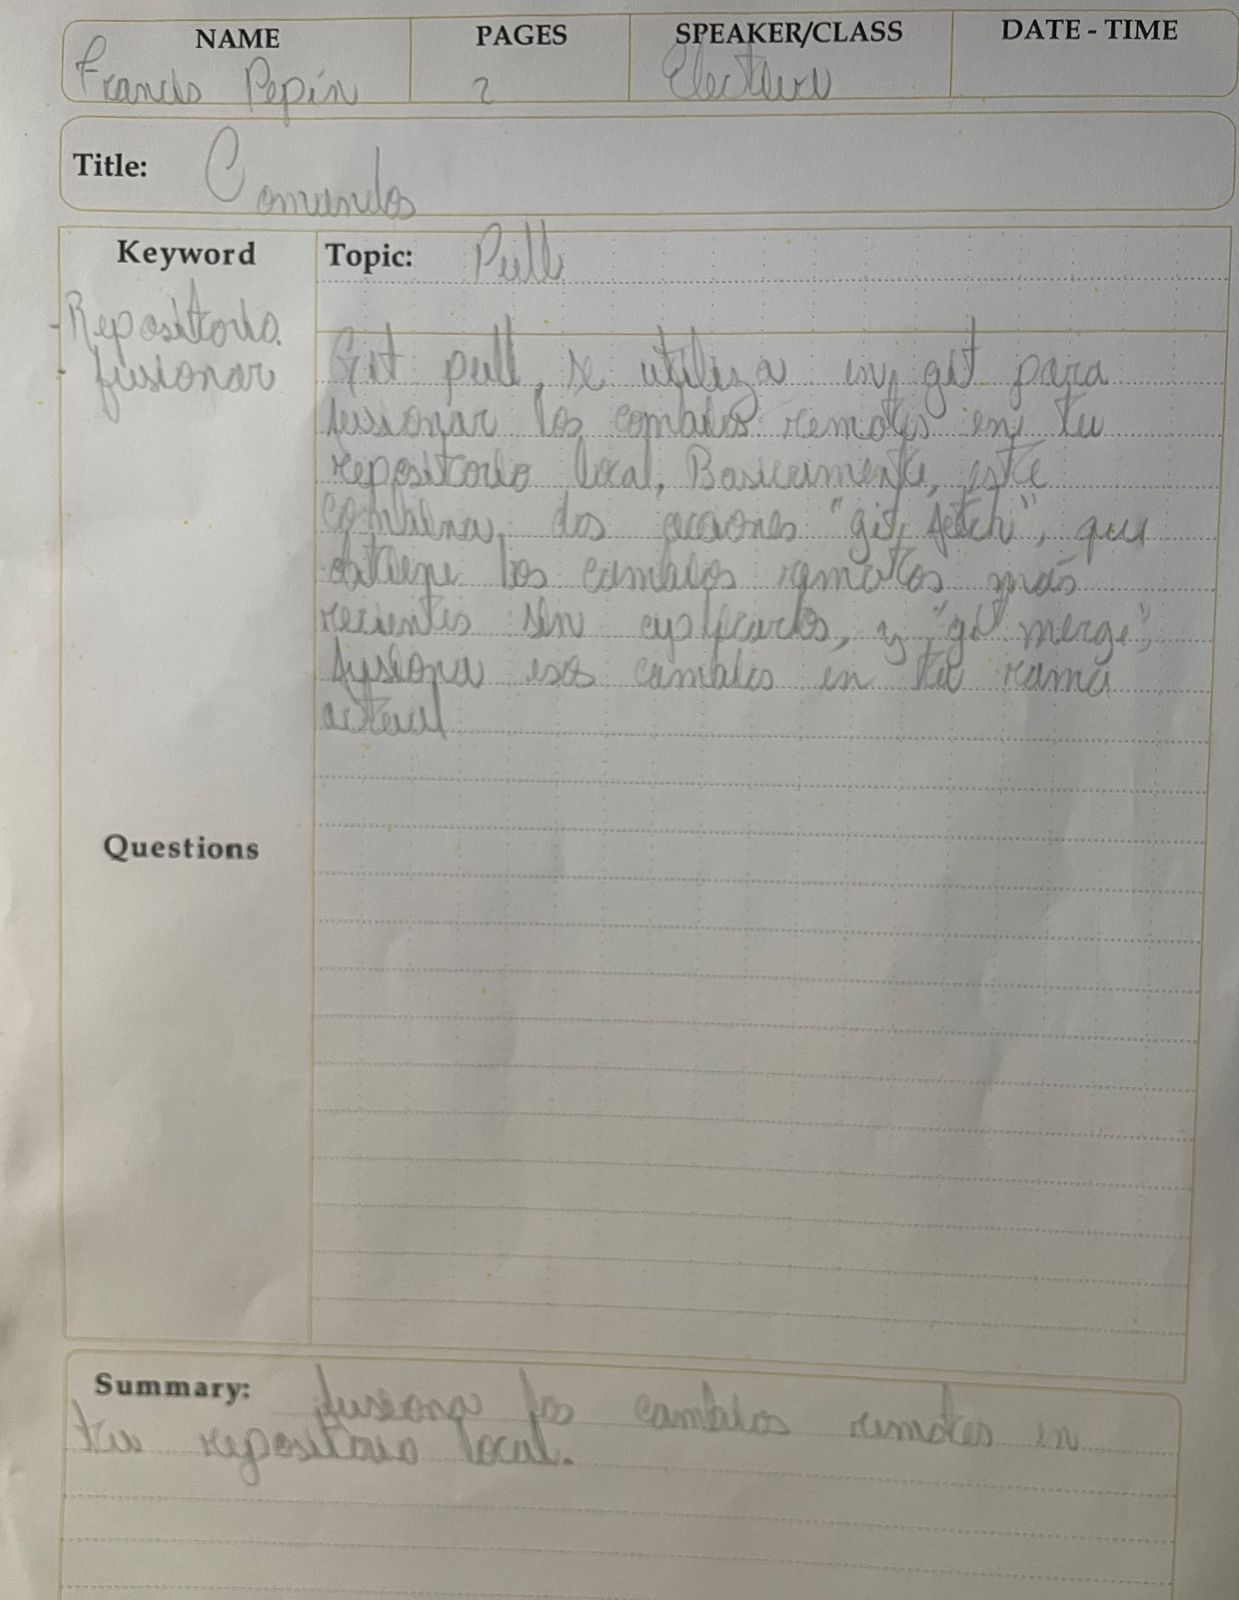 NAME PAGES SPEAKER/CLASS DATE - TIME
Francis Pepín 2 Electiva
Title: Comandos
Keyword Topic: Pull
- Repositorio.
- fusionar
Git pull, se utiliza en git para
fusionar los cambios remotos en tu
repositorio local, Basicamente, este
combina dos acciones "git fetch", que
obtiene los cambios remotos más
recientes sin aplicarlos, y "git merge",
fusiona esos cambios en tu rama
actual
Questions
Summary: fusiona los cambios remotos en
tu repositorio local.